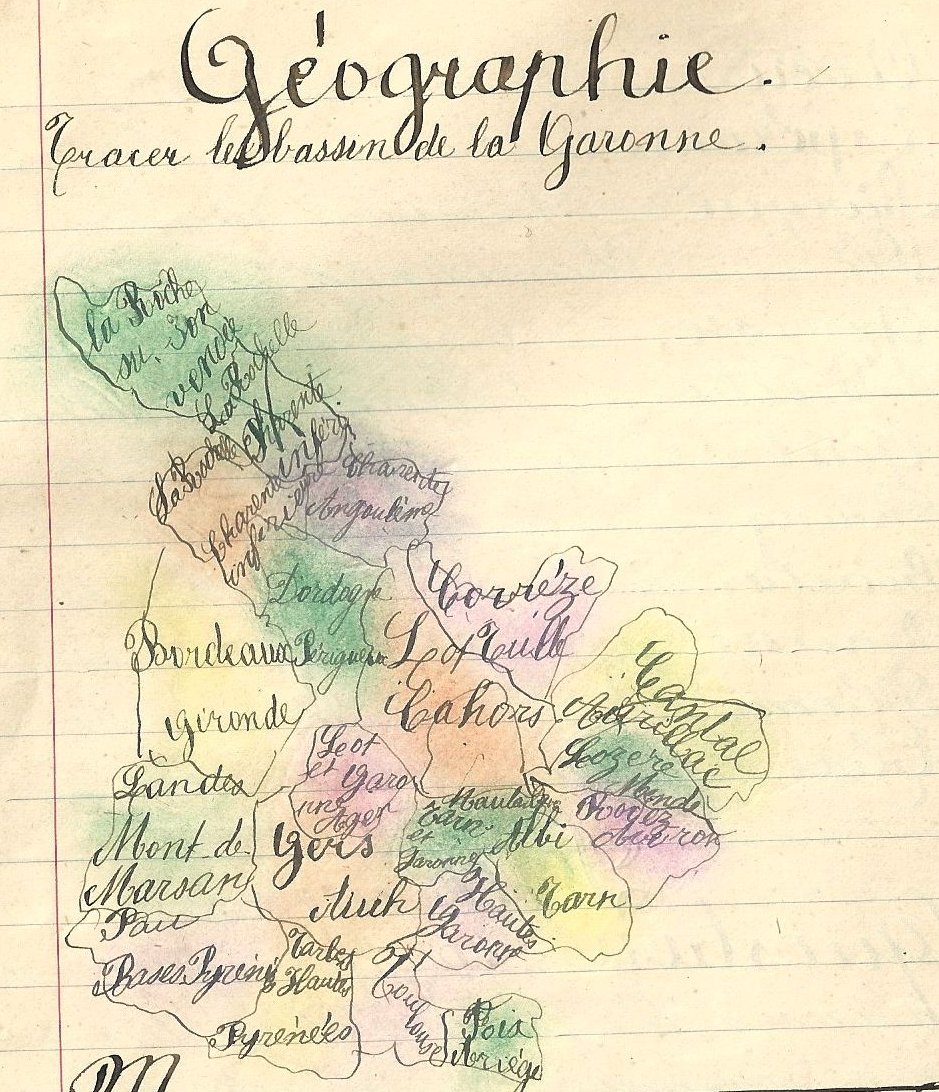 Géographie.
Tracer les bassin de la Garonne.
la Roche
su. Yon
vendée
La Rochelle
Charente
infér
La Rochelle
Charente
inférieur
Charente
Angoulême
Dordogne
Périgueux
Corrèze
Tulle
Lot
Cahors
Bordeaux
Gironde
Cantal
Aurillac
Lozère
Mende
Rodez
Aveiron
Leot
et Garo
nne
Agen
Landes
Mont-de
Marsan
Gers
Auch
Tarn
et
Garonne
Albi
Tarn
Hautes
Garonne
Toulouse
Pau
Bases Pyréné
Tarbes
Hautes
Pyrénées
Foix
Ariége
M